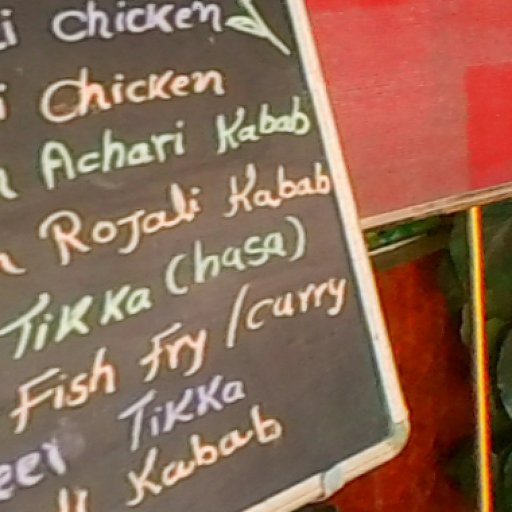 i Chicken
i Chicken
Achari Kabab
Rojali Kabab
Tikka (hasa)
Fish Fry / curry
eer Tikka
ll Kabab